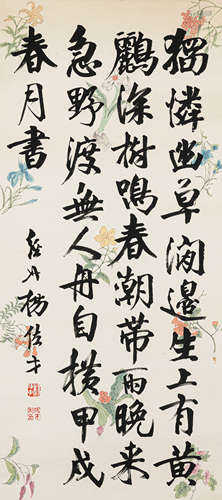 獨憐幽草澗邊生上有黃
鸝深樹鳴春朝帶雨晚來
急野渡無人舟自橫甲戌
春月書
丹楊佐才